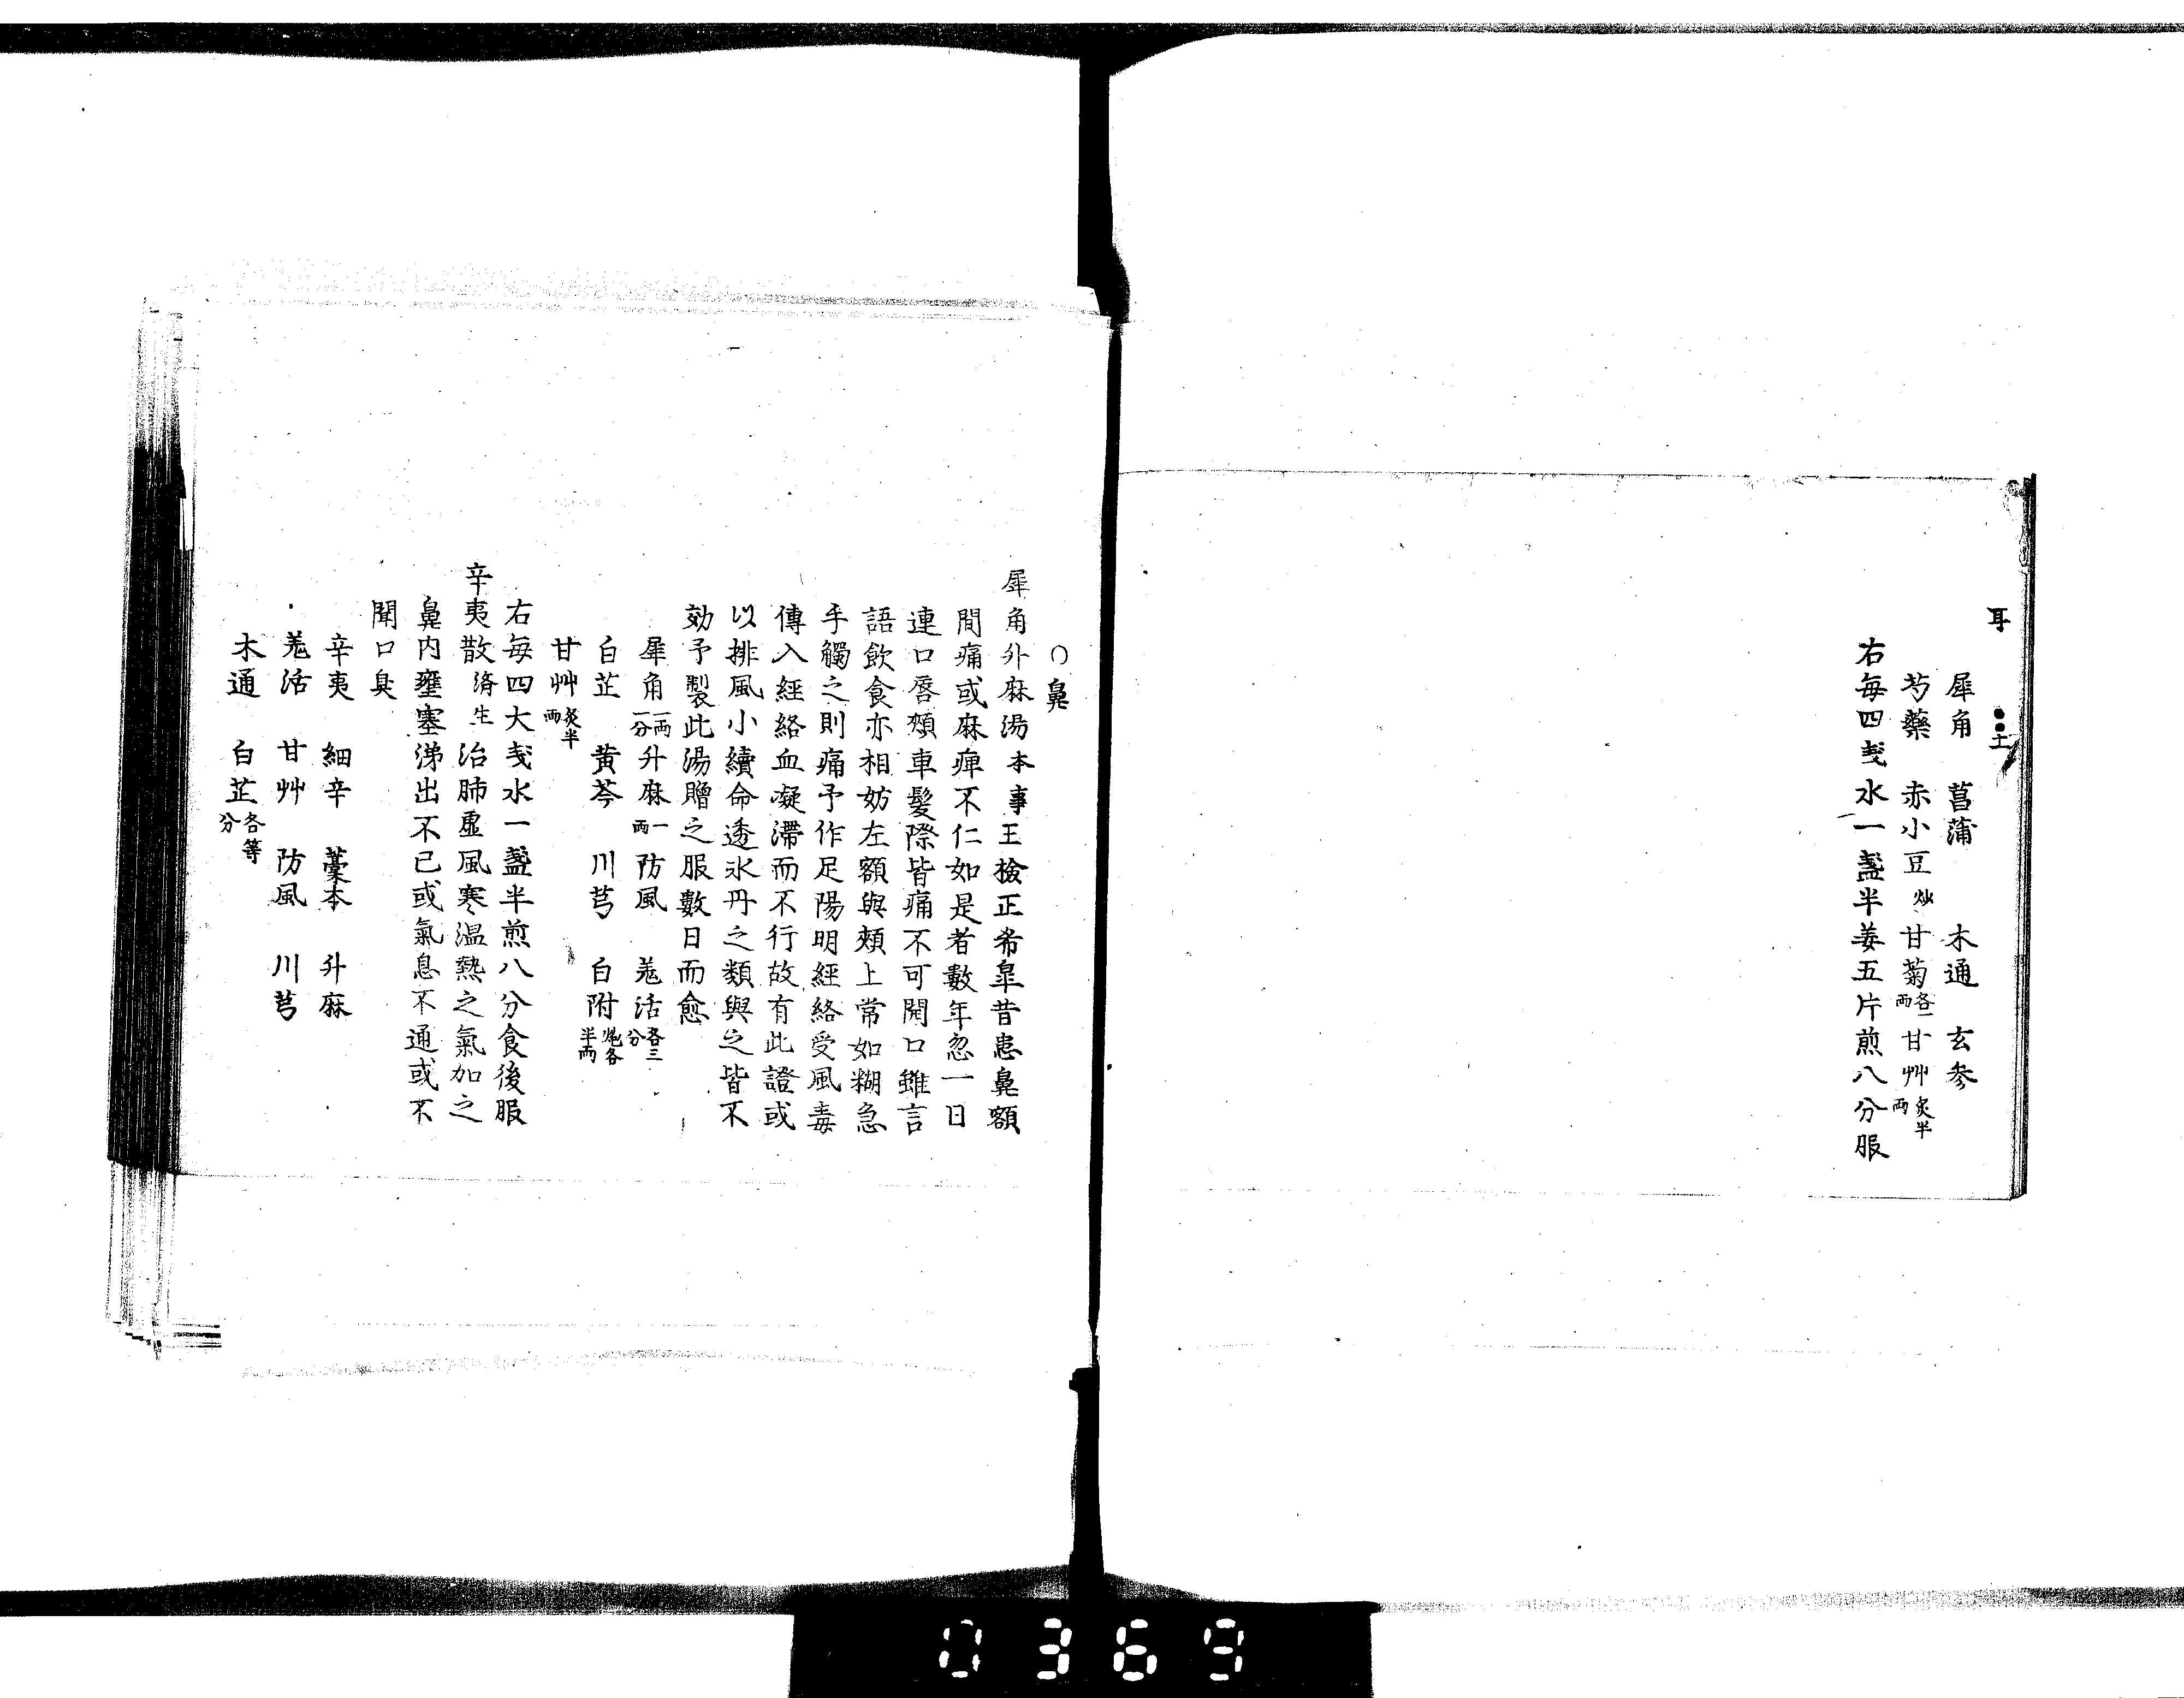 耳
犀角 菖蒲 木通 玄参
芍藥 赤小豆炒 甘菊各一兩 甘艸炙半兩
右每四戔水一盞半姜五片煎八分服
○鼻
犀角升麻湯本事王檢正希皐昔患鼻額
間痛或麻痺不仁如是者數年忽一日
連口唇頰車髮際皆痛不可開口雖言
語飲食亦相妨左額與頰上常如糊急
手觸之則痛予作足陽明經絡受風毒
傳入經絡血凝滯而不行故有此證或
以排風小續命透氷丹之類與之皆不
効予製此湯贈之服數日而愈
犀角一兩一分 升麻一兩 防風 羗活各三分
白芷 黄芩 川芎 白附炮各半兩
甘艸炙半兩
右每四大戔水一盞半煎八分食後服
辛夷散済生 治肺虚風寒温熱之氣加之
鼻内壅塞涕出不已或氣息不通或不
聞口臭
辛夷 細辛 藁本 升麻
羗活 甘艸 防風 川芎
木通 白芷各等分
0369